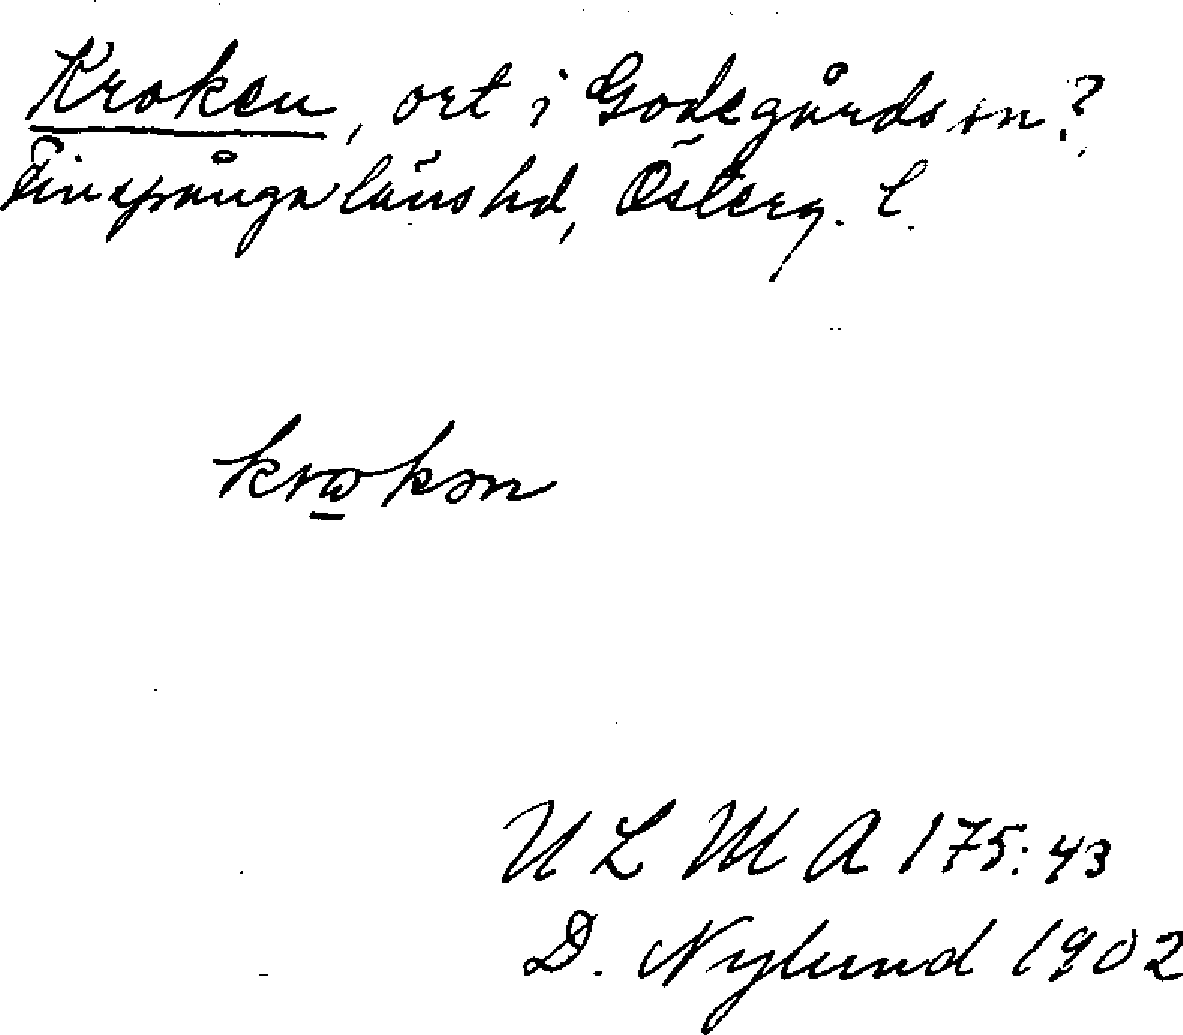 Kroken, ort i Godegårds sn?
Finspånga läns hd, Österg. l.
krωkən
ULMA 175:43
D. Nylund 1902